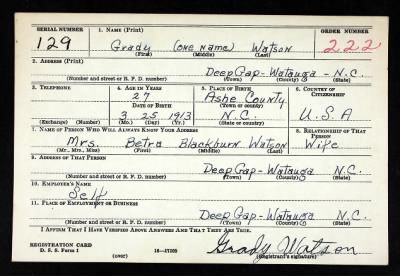 SERIAL NUMBER 1. NAME (Print) ORDER NUMBER
129 Grady (One name) Watson 222
(First) (Middle) (Last)
2. ADDRESS (Print)
Deep Gap - Watauga - N.C.
(Number and street or R. F. D. number) (Town) (County) (State)
3. TELEPHONE 4. AGE IN YEARS 5. PLACE OF BIRTH 6. COUNTRY OF CITIZENSHIP
27 Ashe County
DATE OF BIRTH (Town or county)
3 25 1913 N.C. U.S.A
(Exchange) (Number) (Mo.) (Day) (Yr.) (State or country)
7. NAME OF PERSON WHO WILL ALWAYS KNOW YOUR ADDRESS 8. RELATIONSHIP OF THAT PERSON
Mrs. Betra Blackburn Watson Wife
(Mr., Mrs., Miss) (First) (Middle) (Last)
9. ADDRESS OF THAT PERSON
Deep Gap - Watauga N.C.
(Number and street or R. F. D. number) (Town) (County) (State)
10. EMPLOYER'S NAME
Self
11. PLACE OF EMPLOYMENT OR BUSINESS
Deep Gap - Watauga N.C.
(Number and street or R. F. D. number) (Town) (County) (State)
I AFFIRM THAT I HAVE VERIFIED ABOVE ANSWERS AND THAT THEY ARE TRUE.
REGISTRATION CARD
D. S. S. Form 1 (over) 16—17105 Grady Watson
(Registrant's signature)